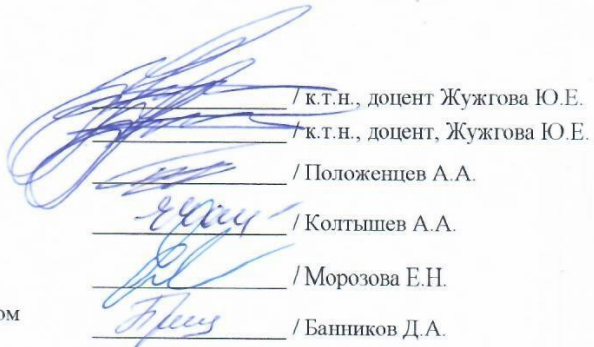 / к.т.н., доцент Жужгова Ю.Е.
/ к.т.н., доцент, Жужгова Ю.Е.
/ Положенцев А.А.
/ Колтышев А.А.
/ Морозова Е.Н.
ом / Банников Д.А.